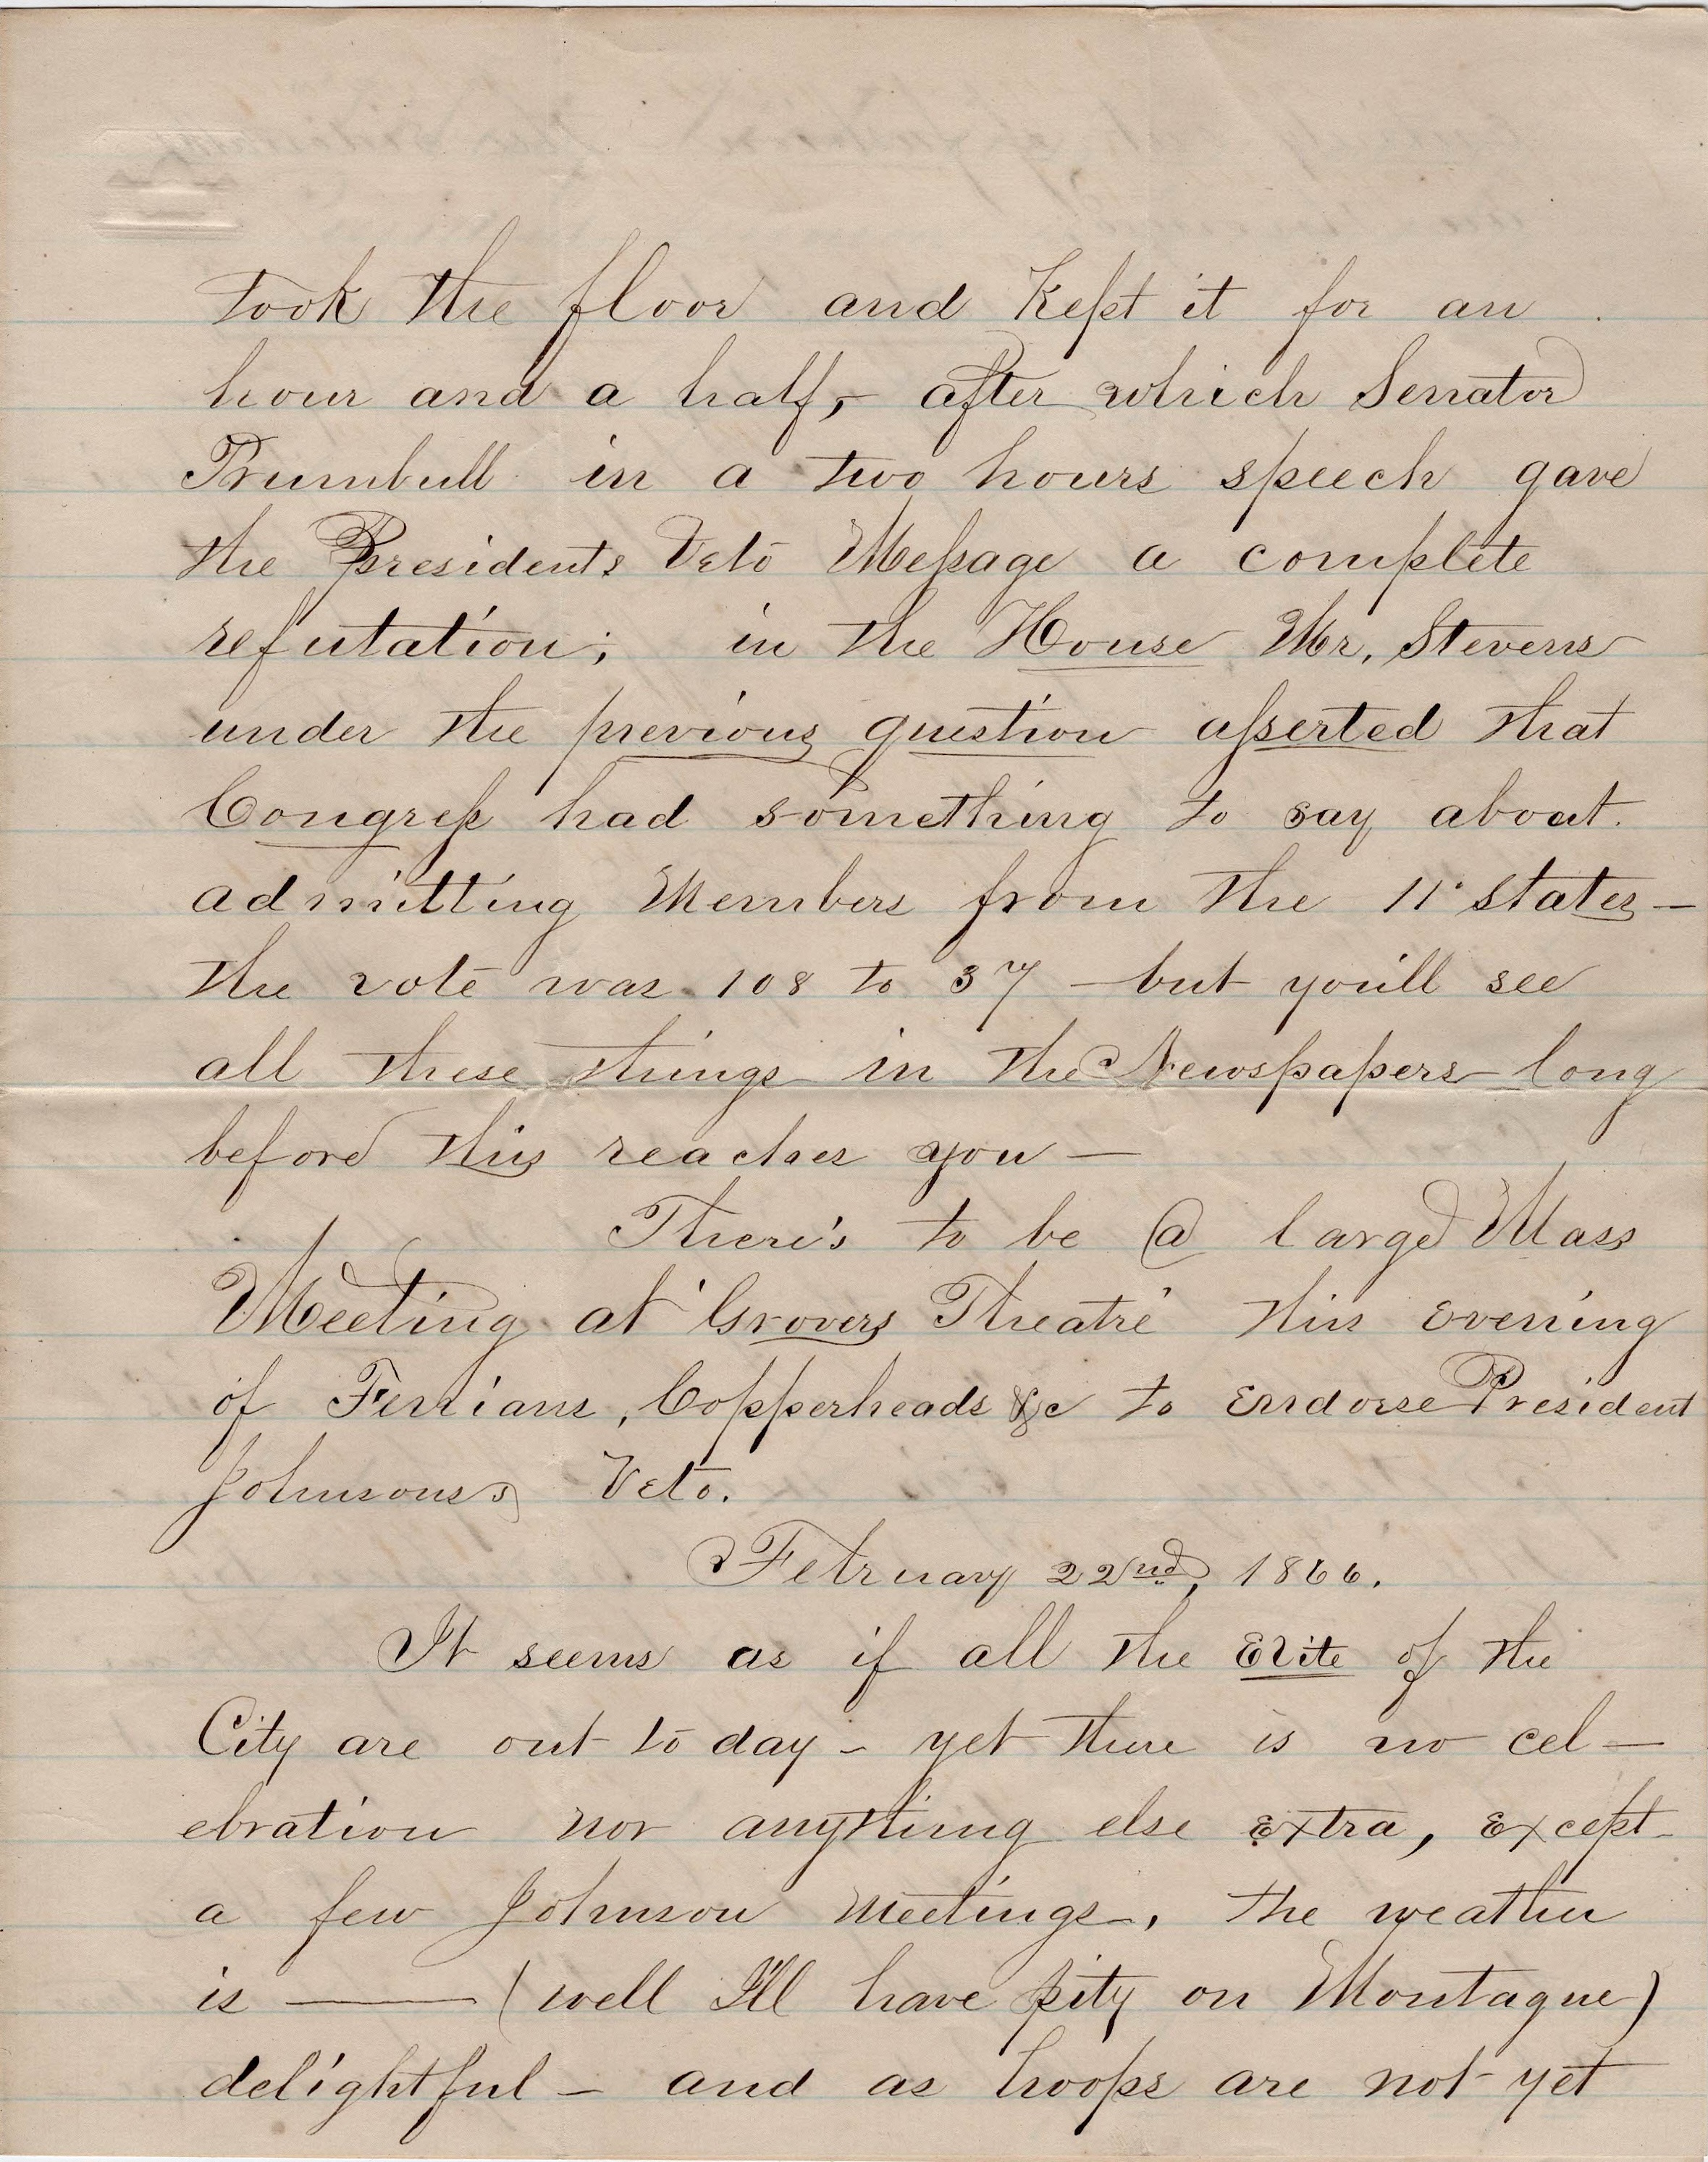 took the floor and kept it for an
hour and a half, – after which Senator
Trumbull in a two hours speech gave
the Presidents Veto Message a complete
refutation; in the House Mr. Stevens
under the previous question asserted that
Congress had something to say about
admitting Members from the 11 states –
the vote was 108 to 37 – but you'll see
all these things in the Newspapers long
before this reaches you –
There's to be a large Mass
Meeting at Grovers Theatre this evening
of Fenians, Copperheads &c to endorse President
Johnsons Veto.
February 22nd, 1866.
It seems as if all the Elite of the
City are out to day – yet there is no cel –
ebration nor anything else extra, except
a few Johnson Meetings, the weather
is —— (well I'll have pity on Montague)
delightful – and as hoops are not yet